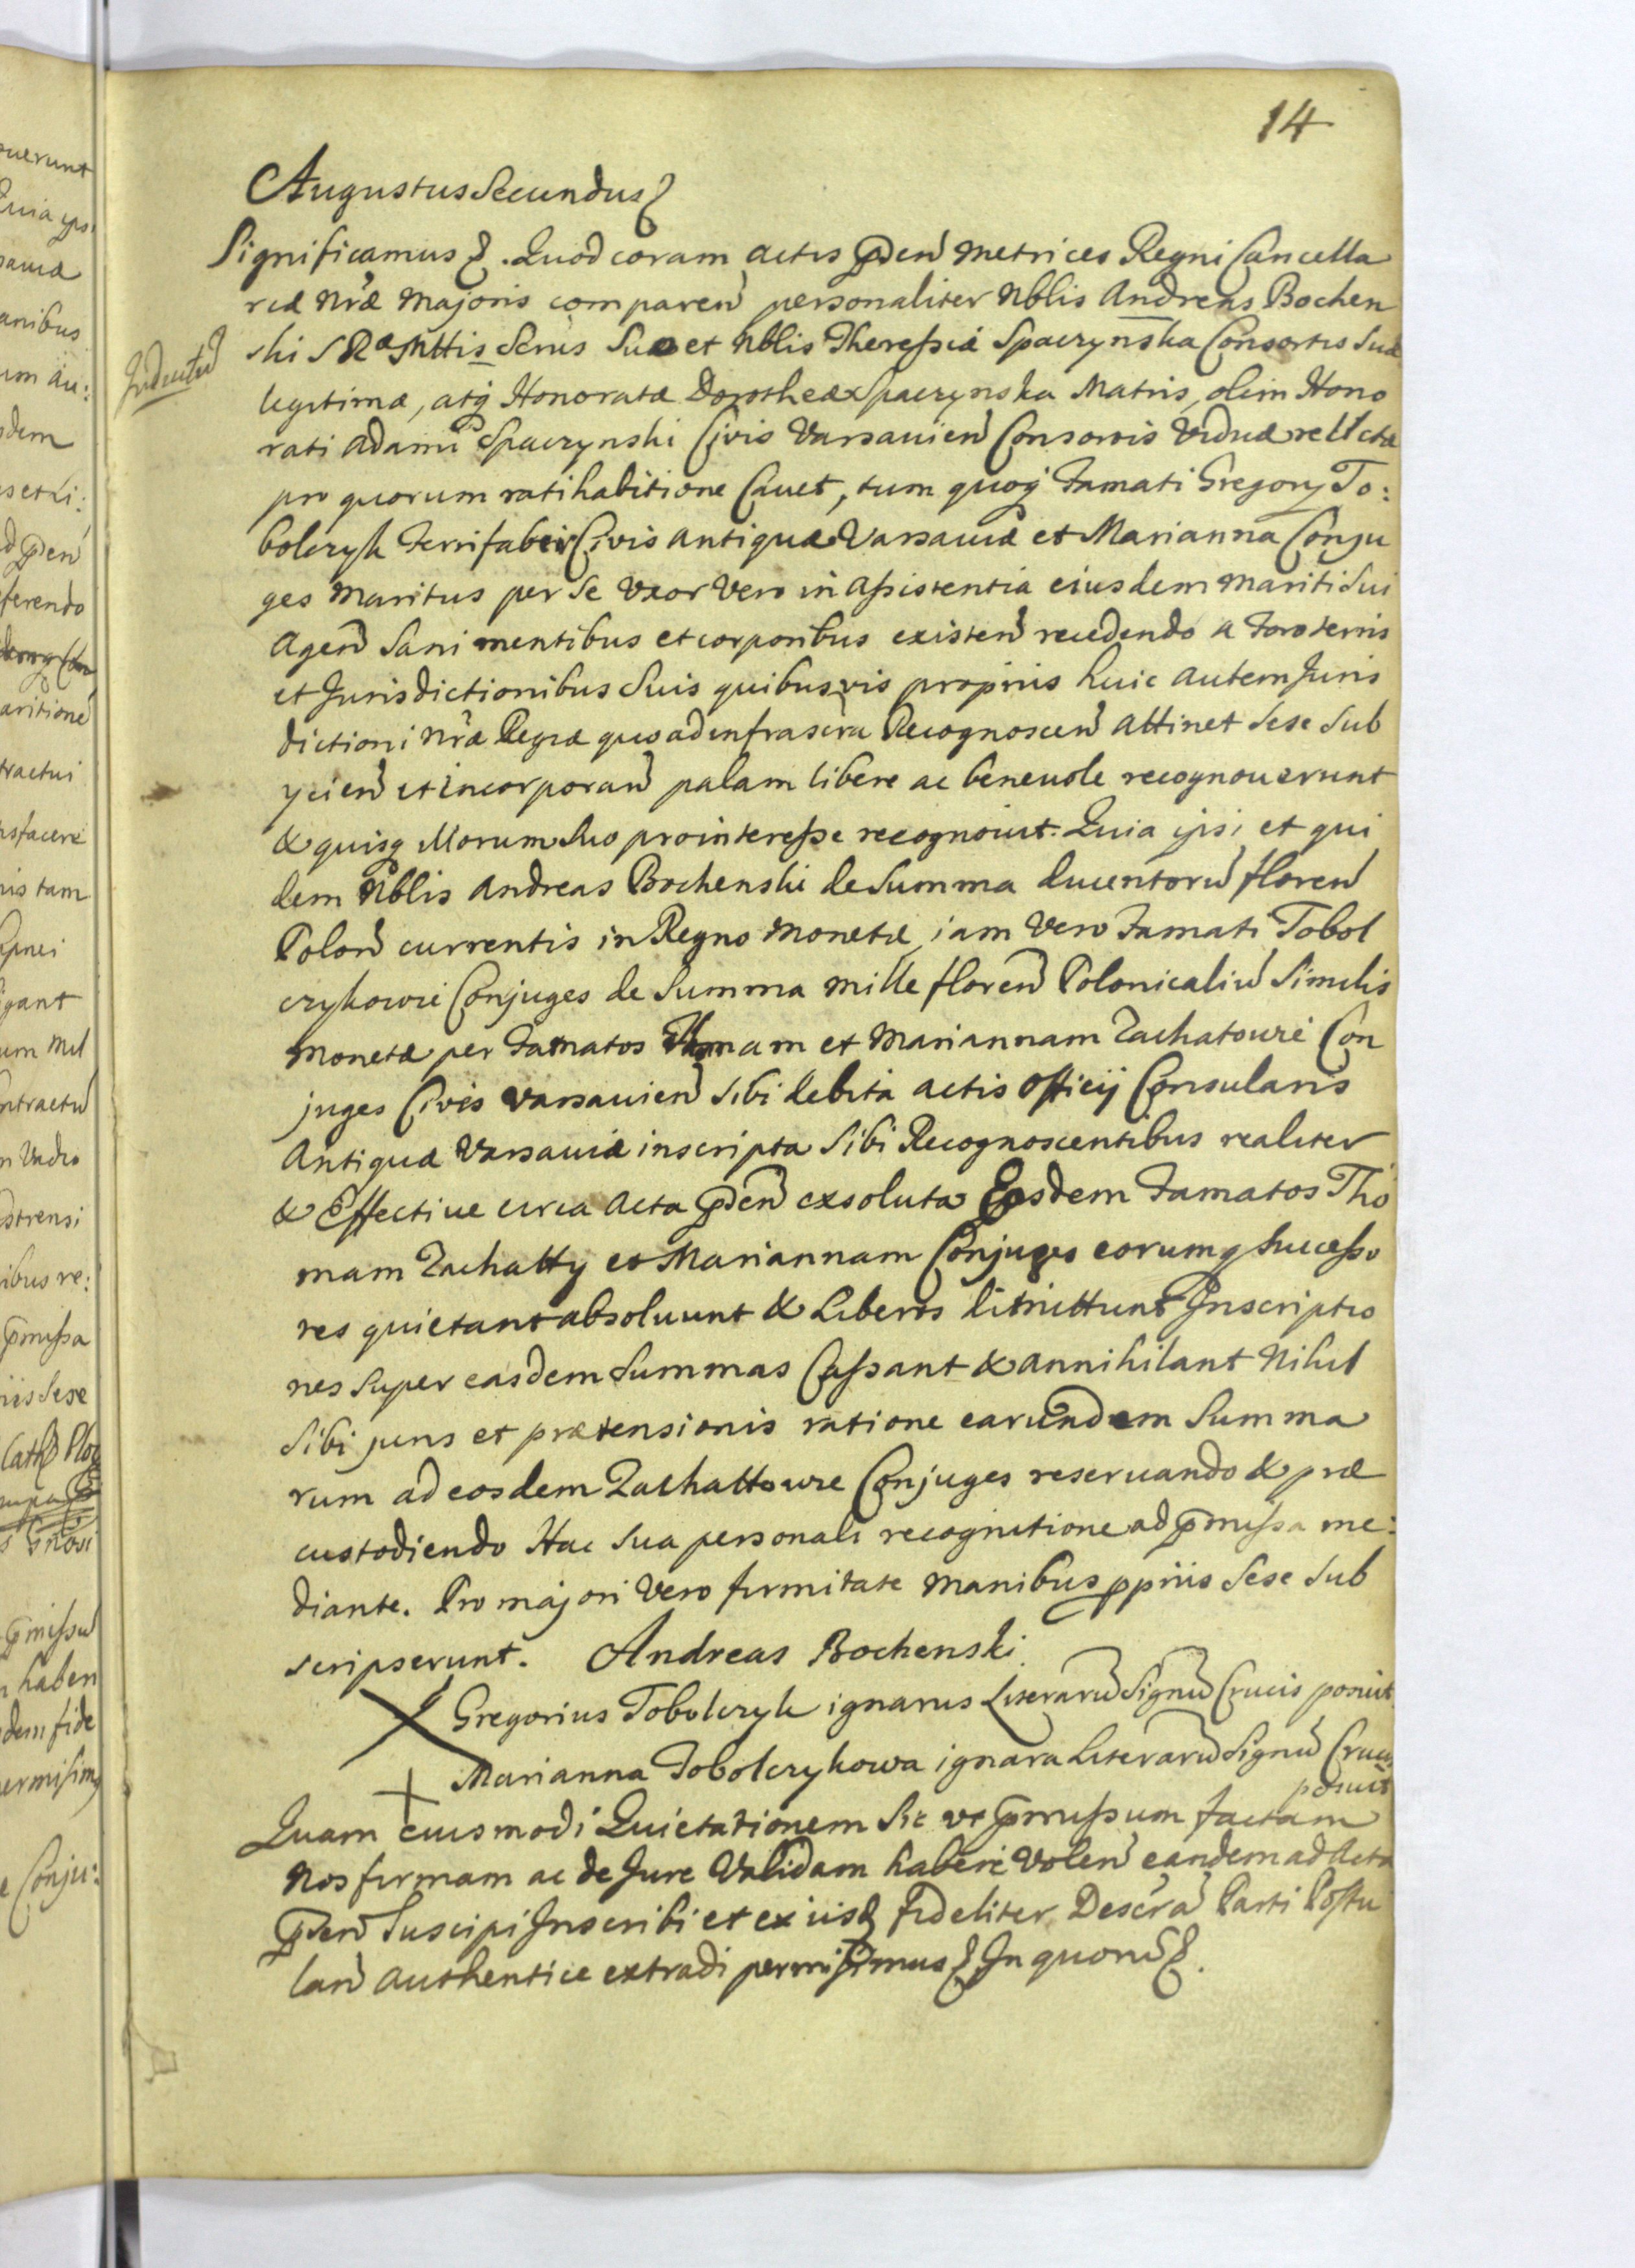 14
Augustus Secundus
Significamus. Quod coram actis pđen Metrices Regni Cancella
riæ Nræ Majoris comparen personaliter Nblis Andreas Bochen
ski S Ræ Mttis Scrius Suo et Nblis Theressiæ Spaczynska Consortis Suæ
legitimæ, atq Honoratæ Dorotheæ Spaczynska Matris, olim Hono
rati Adami Spaczynski Civis Varsavien Consortis Viduæ relictæ
pro quorum ratihabitione Cavet, tum quoq Famati Gregory To:
bolczyk Ferrifabri Civis Antiquæ Varsaviæ et Marianna Conju
ges Maritus per Se Uxor Vero in Assistentia eiusdem Mariti Sui
Agen Sani mentibus et corporibus existen recedendo a Foro terris
et Jurisdictionibus Suis quibusvis proprijs huic autem Juris
dictioni Nræ Regiæ quoad infrascra Recognoscen Attinet Sese Sub
ycien et incorporan palam libere ac benevole recognoverunt
& quisq illorum Suo pro interesse recognovit. Quia ipsi et qui
dem Nblis Andreas Bochenski de Summa ducentorū floren
Polon currentis in Regno Monetæ, iam Vero Famati Tobol
czykowie Conjuges de Summa mille floren Polonicaliū Similis
Monetæ per Famatos Thomam et Mariannam Zachatowie Con
juges Cives Varsavien Sibi debita actis Officij Consularis
Antiquæ Varsaviæ inscripta Sibi Recognoscentibus realiter
& Effective circa Acta pđen exsoluta Eosdem Famatos Tho
mam Zachatty et Mariannam Conjuges eorumq Successo
res quietant absolvunt & Liberos dimittunt Inscriptio
nes Super easdem Summas Cassant & annihilant Nihil
Sibi juris et prætensionis ratione earundem Summa
rum ad eosdem Zachattowie Conjuges reservando & præ
custodiendo Hac Sua personali recognitione ad pmissa me:
diante. Pro majori Vero firmitate Manibus ppriis Sese Sub
scripserunt. Andreas Bochenski
X Gregorius Tobolczyk ignarus Literarū Signū Crucis posuit
+ Marianna Tobolczykowa ignara Literarū Signū Crucis
posuit
Quam eiusmodi Quietationem Sic ut pmissum factam
Nos firmam ac de Jure Validam habere Volen eandem ad Acta
pđen Suscipi Inscribi et ex iisd fideliter Descra Parti Postu
lan authentice extradi permisimus In quorū